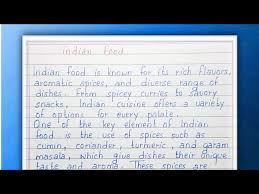 Indian Food
Indian food is known for its rich flavors,
aromatic spices, and diverse range of
dishes. From spicey curries to savory
snacks, Indian cuisine offers a variety
of options for every palate.
One of the key element of Indian
food is the use of spices such as
cumin, coriander, turmeric, and garam
masala, which give dishes their unique
taste and aroma. These spices are